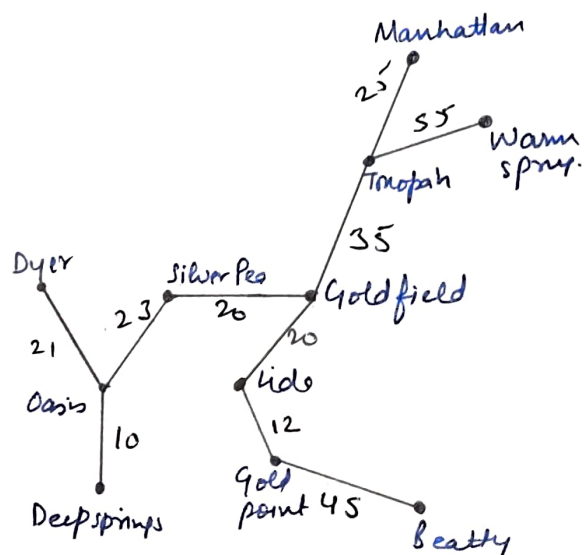 Manhattan
25
55
Warm
spry.
Tonopah
35
Dyer
Silver Pea
Goldfield
23
20
20
21
Lido
Oasis
12
10
Gold
point
45
Deepsprings
Beatty